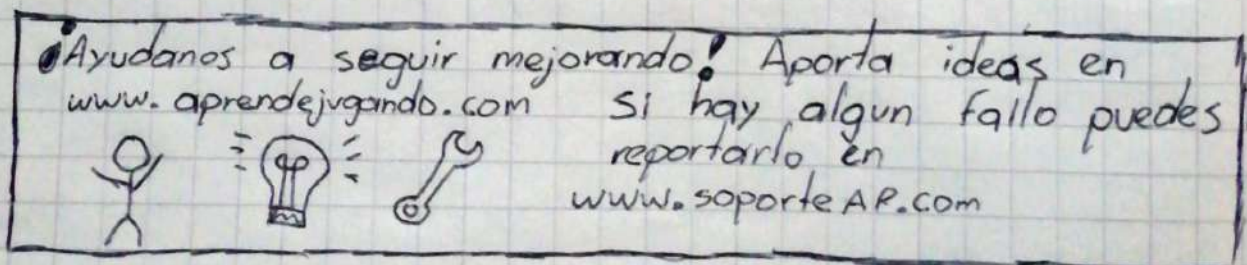 ¡Ayudanos a seguir mejorando! Aporta ideas en
www.aprendejugando.com Si hay algun fallo puedes
reportarlo en
www.soporteAR.com